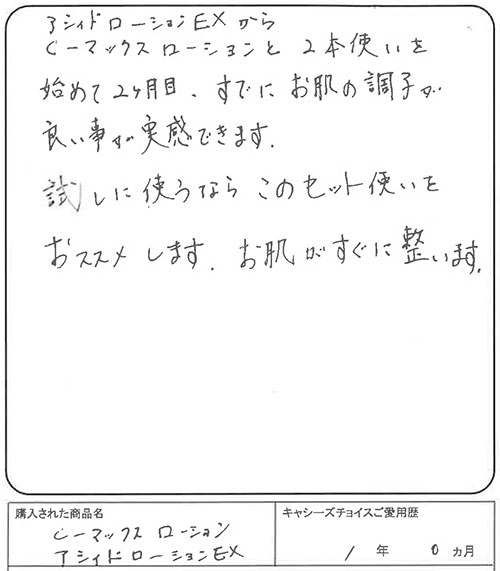 アシィドローションEXから
Cーマックスローションと 2本使いを
始めて2ヶ月目、すでにお肌の調子が
良い事が実感できます.
試しに使うなら このセット使いを
おススメします. お肌がすぐに整います.
購入された商品名
Cーマックス ローション
アシィドローションEX
キャシーズチョイスご愛用歴
1 年 0 ヵ月